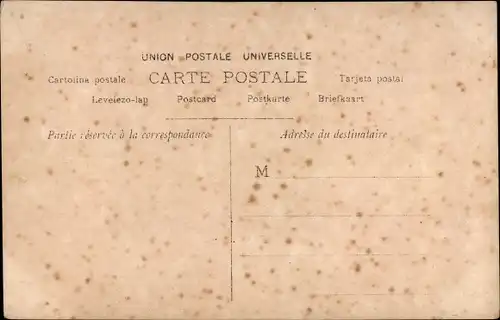 UNION POSTALE UNIVERSELLE
Cartolina postale CARTE POSTALE Tarjeta postal
Levelezo-lap Postcard Postkarte Briefkaart
Partie réservée à la correspondance Adresse du destinataire
M